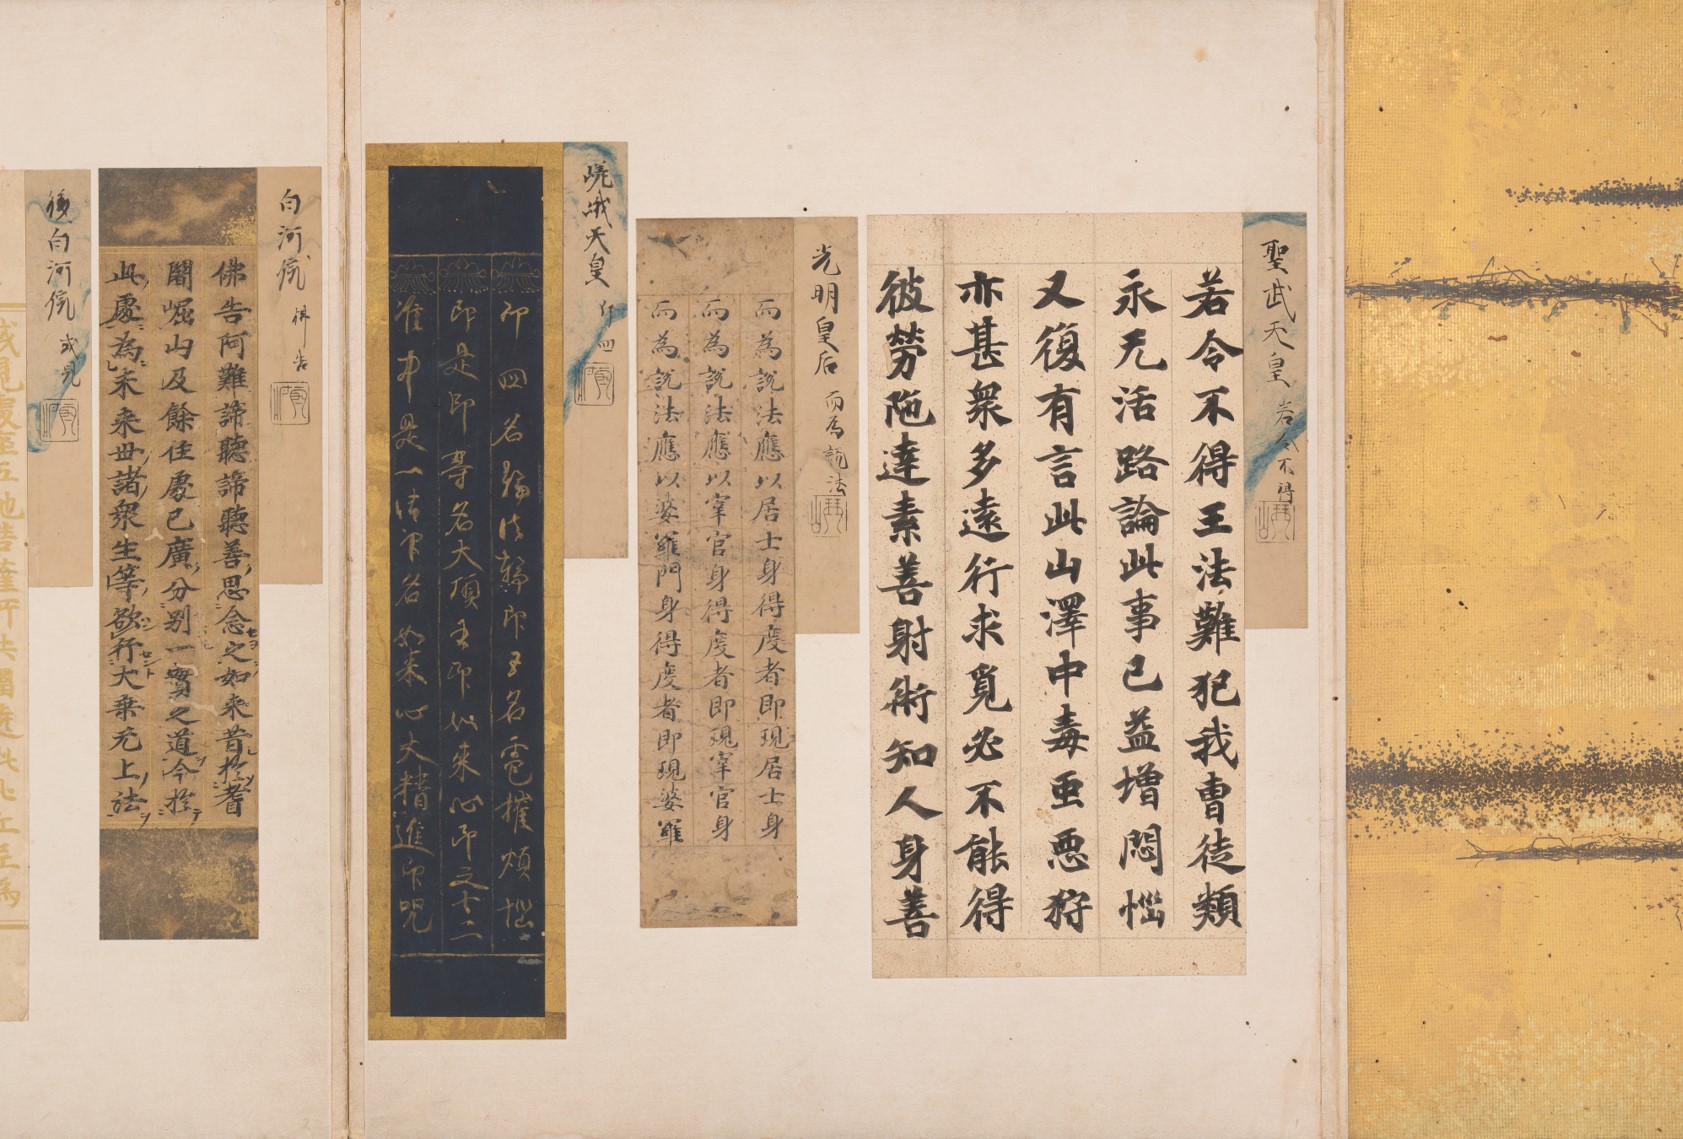 聖武天皇 若令不得
若令不得王法難犯我曹徒類
永无活路論此事已益增悶惱
又復有言此山澤中毒虫悪狩
亦甚衆多遠行求覓必不能得
彼勞陁達素善射術知人身善
光明皇后 而為說法
而為說法應以居士身得度者即現居士身
而為說法應以宰官身得度者即現宰官身
而為說法應以婆羅門身得度者即現婆羅
嵯峨天皇 印四
印四名轉法輪印五名電摧煩惱
即是印 等名大頂王印如来心印之十二
准 是一 印名如来心大精進印呪
白河院 佛告
佛告阿難諦聽諦聽善思念之如来昔於耆
闍崛山及餘住處已廣分别一實之道今於
此處為未来世諸衆生等欲行大乗无上法
後白河院 或見
或見夏至五地菩薩所共